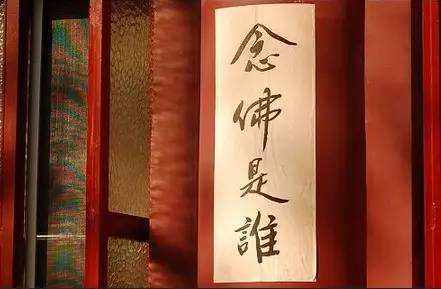 念佛是誰